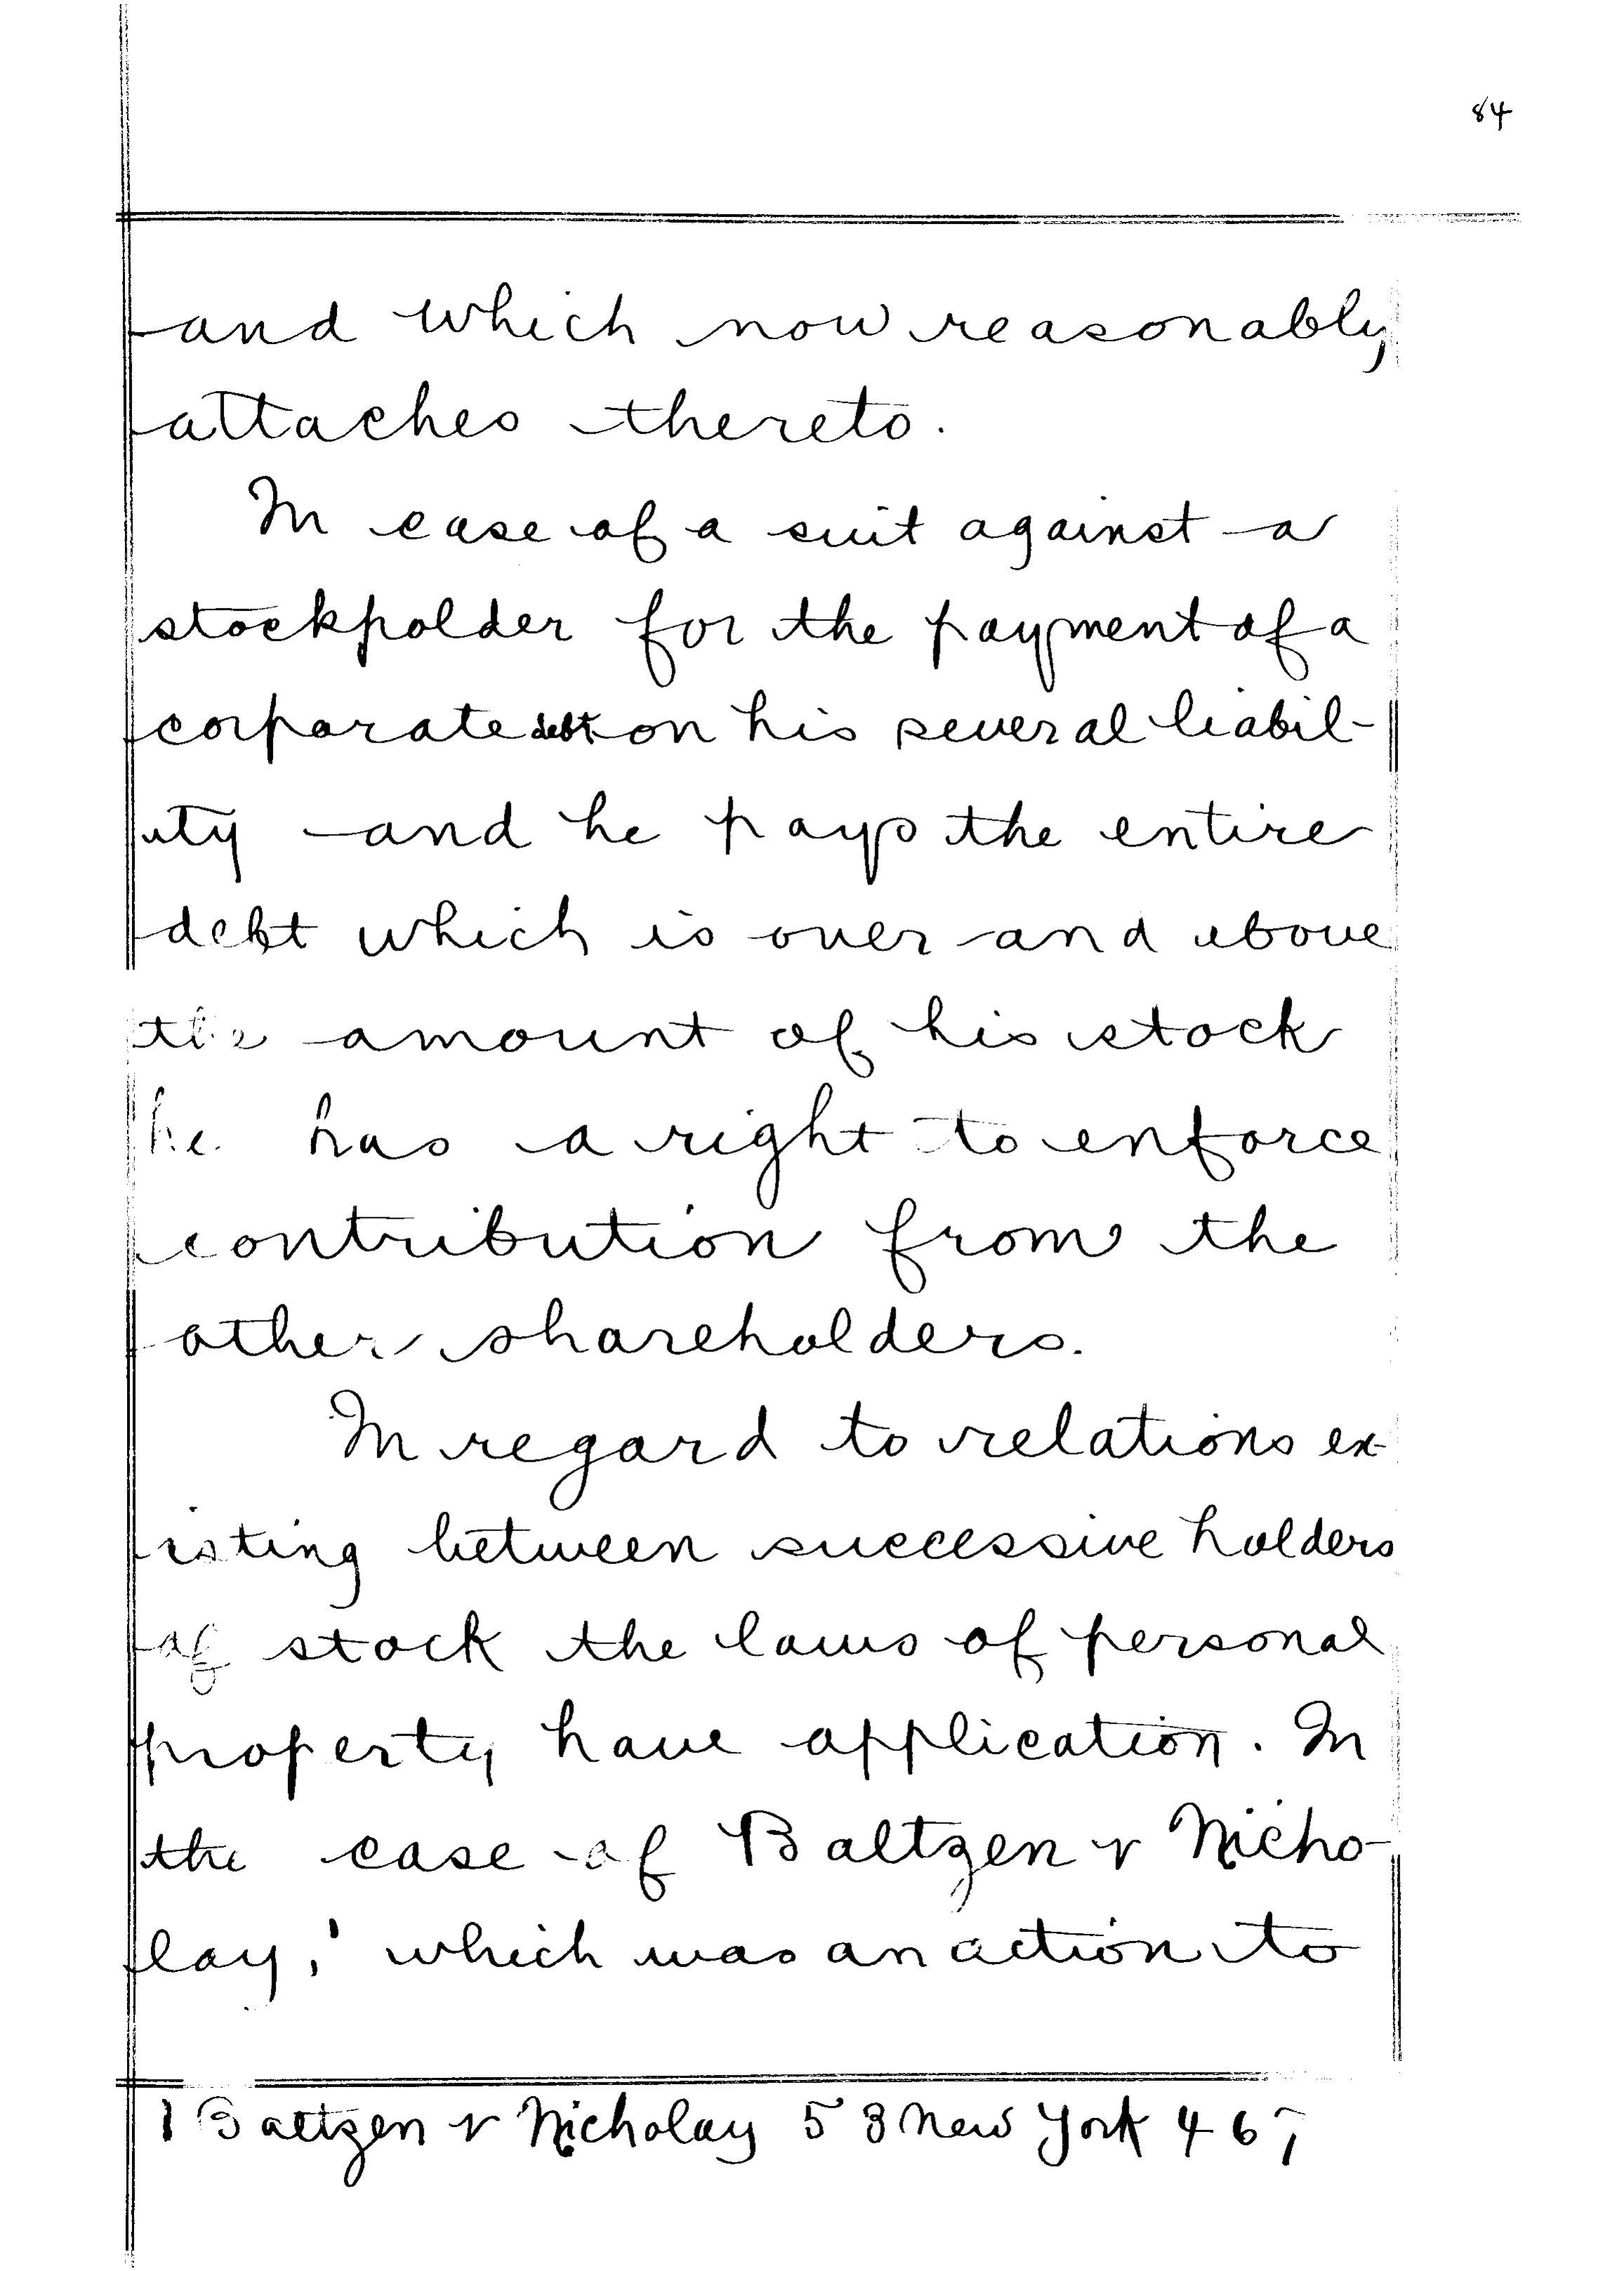 84
and which now reasonably
attaches thereto.
In case of a suit against a
stockholder for the payment of a
corporate debt on his several liabil-
ity and he pays the entire
debt which is over and above
the amount of his stock
he has a right to enforce
contribution from the
other shareholders.
In regard to relations ex-
isting between successive holders
of stock the laws of personal
property have application. In
the case of Baltzen v Nicho-
lay,¹ which was an action to
1 Baltzen v Nicholay 53 New York 467